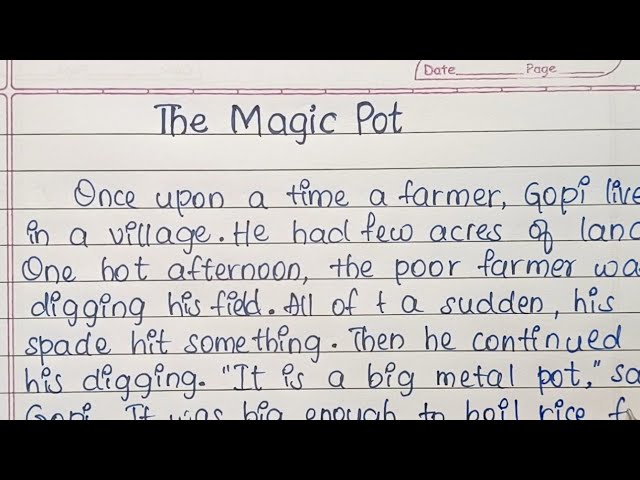 Date Page
The Magic Pot
Once upon a time a farmer, Gopi live
in a village. He had few acres of land
One hot afternoon, the poor farmer wa
digging his field. All of t a sudden, his
spade hit something. Then he continued
his digging. "It is a big metal pot," sa
Gopi. It was big enough to boil rice f